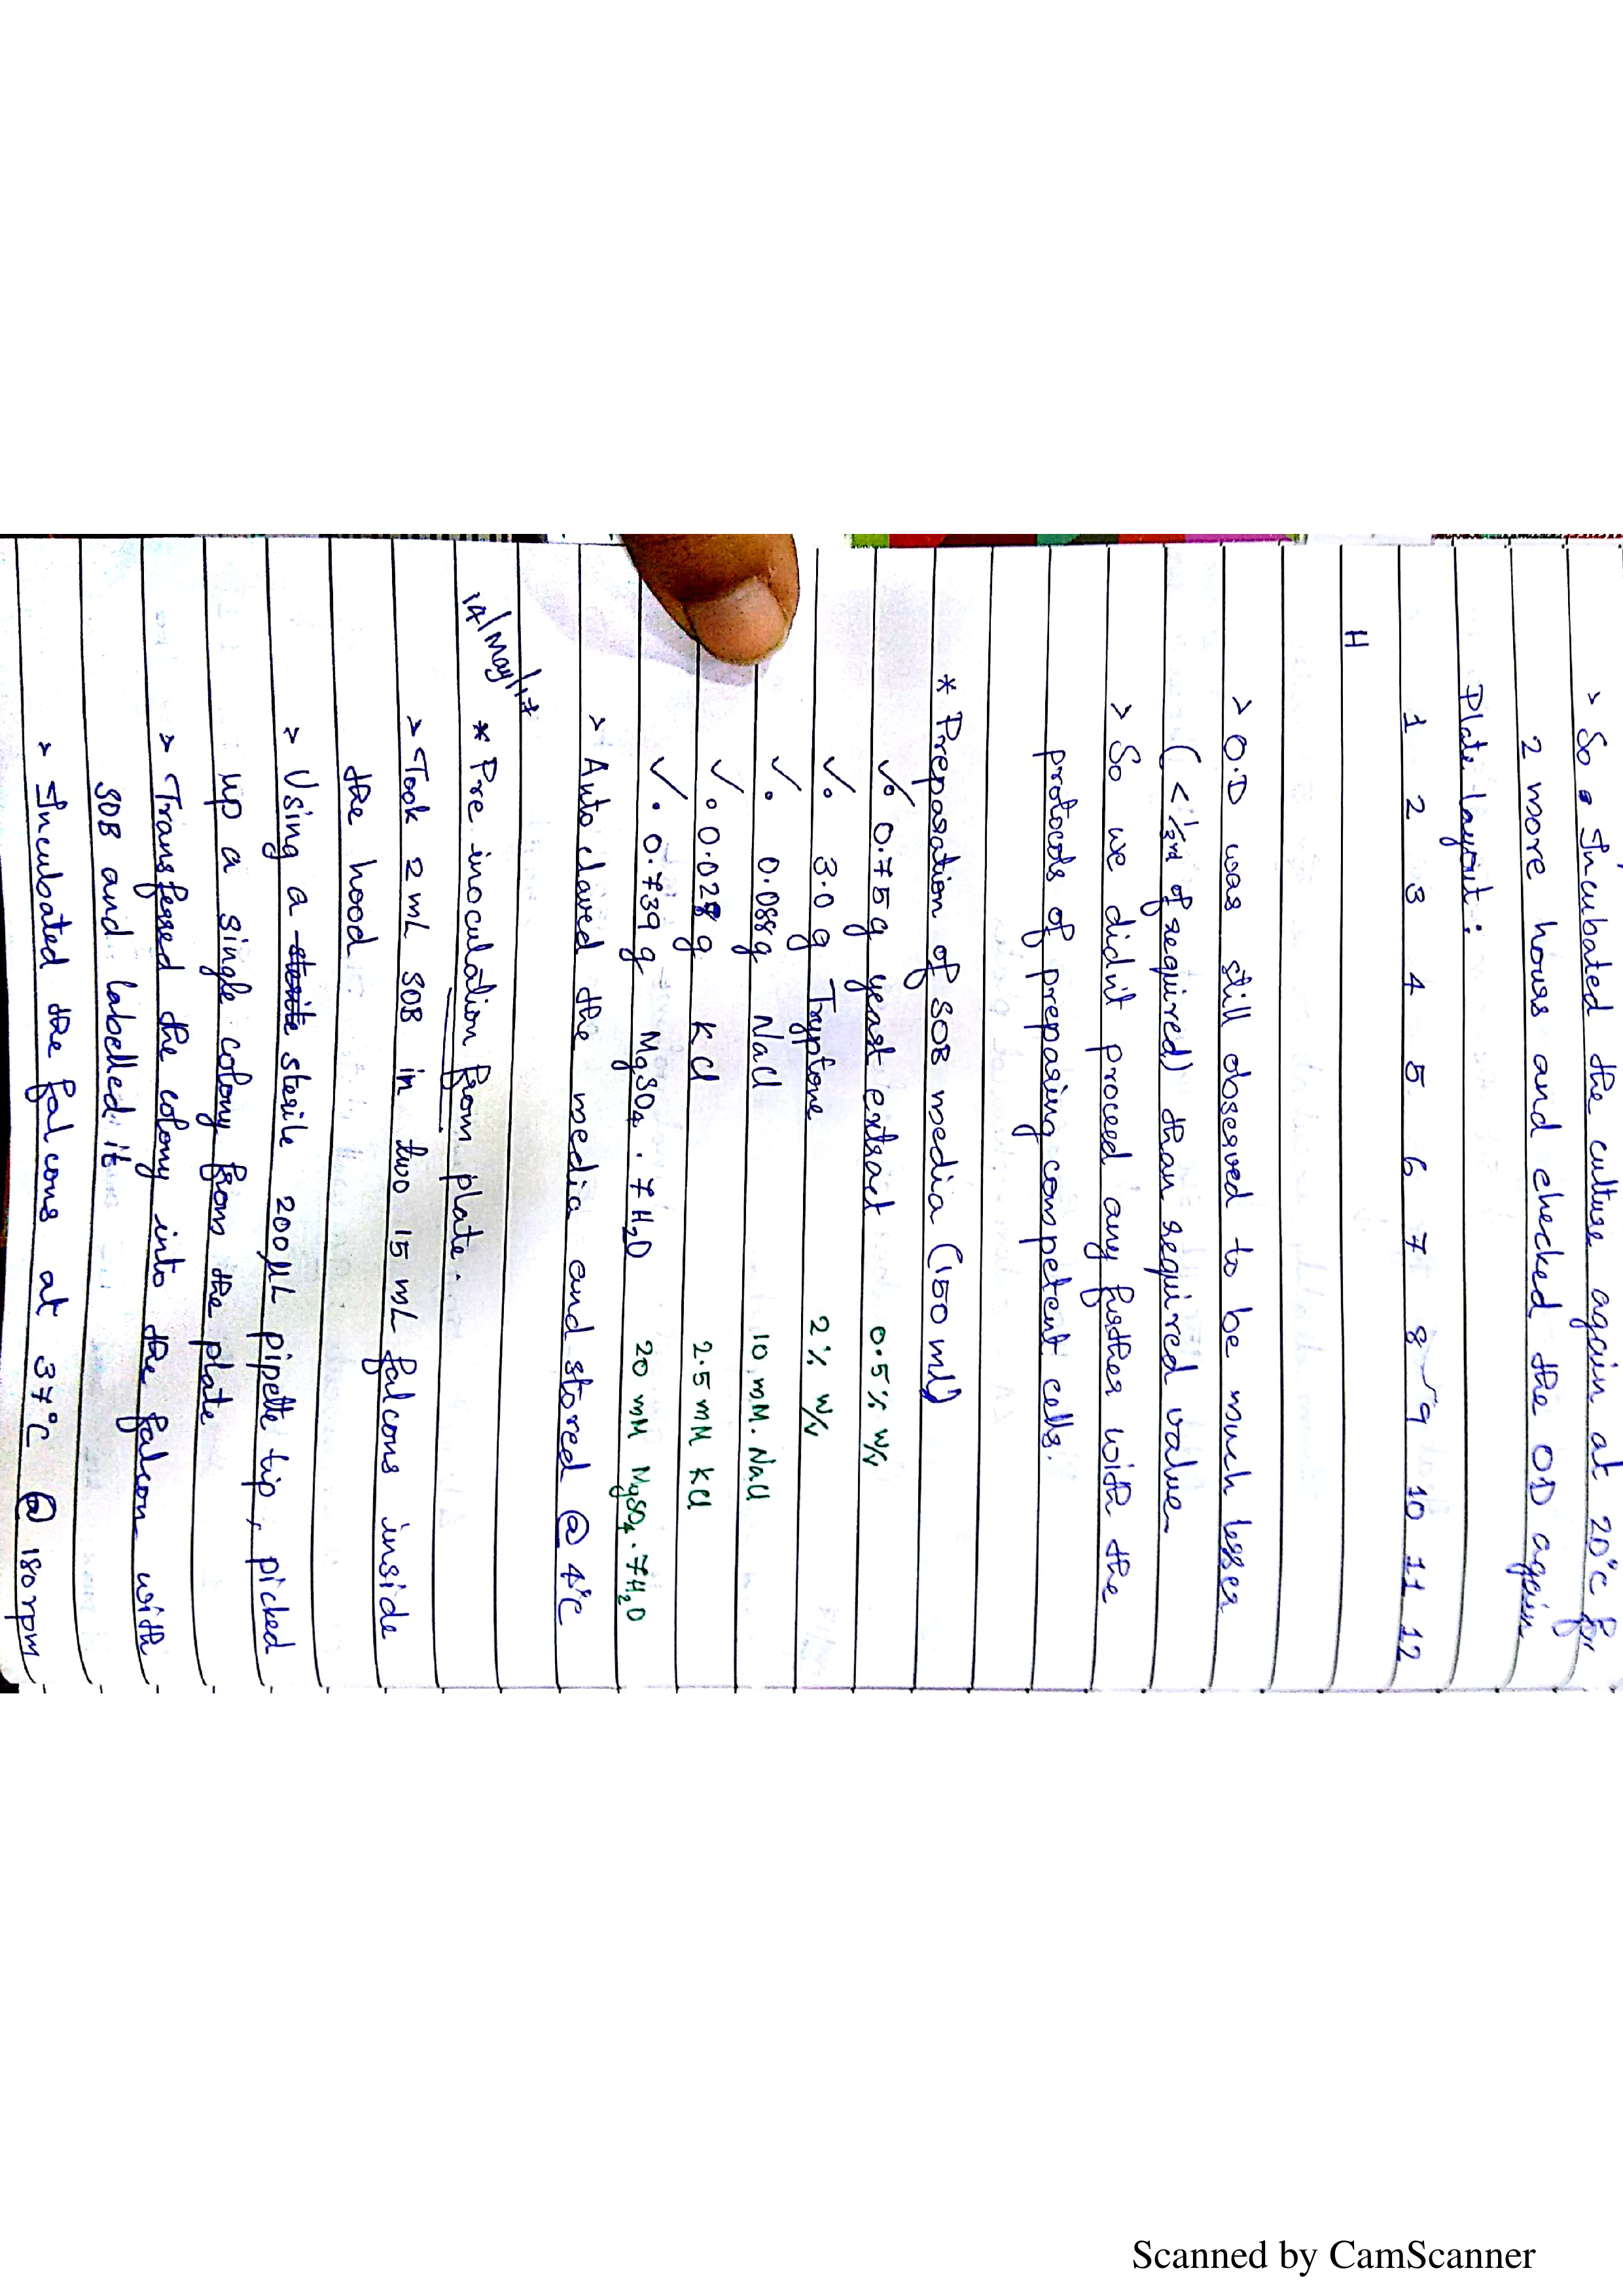 > So Incubated the culture again at 20°C for
2 more hours and checked the OD again
Plate layout :
1 2 3 4 5 6 7 8 9 10 11 12
H
> O.D was still observed to be much lesser
( < 1/3rd of required) than required value.
> So we didn't proceed any further with the
protocols of preparing competent cells.
* Preparation of SOB media (150 ml)
✓• 0.75 g yeast extract 0.5% w/v
✓• 3.0 g Tryptone 2% w/v
✓• 0.088g NaCl 10 mM. NaCl
✓• 0.028 g KCl 2.5 mM KCl
✓• 0.739 g MgSO4 . 7 H2O 20 mM MgSO4 . 7H2O
> Autoclaved the media and stored @ 4°C
14/May/17
* Pre inoculation from plate.
> Took 2 mL SOB in two 15 mL falcons inside
the hood.
> Using a sterile sterile 200 µL pipette tip, picked
up a single colony from the plate
> Transferred the colony into the falcon with
SOB and labelled it
> Incubated the falcons at 37°C @ 180 rpm
Scanned by CamScanner